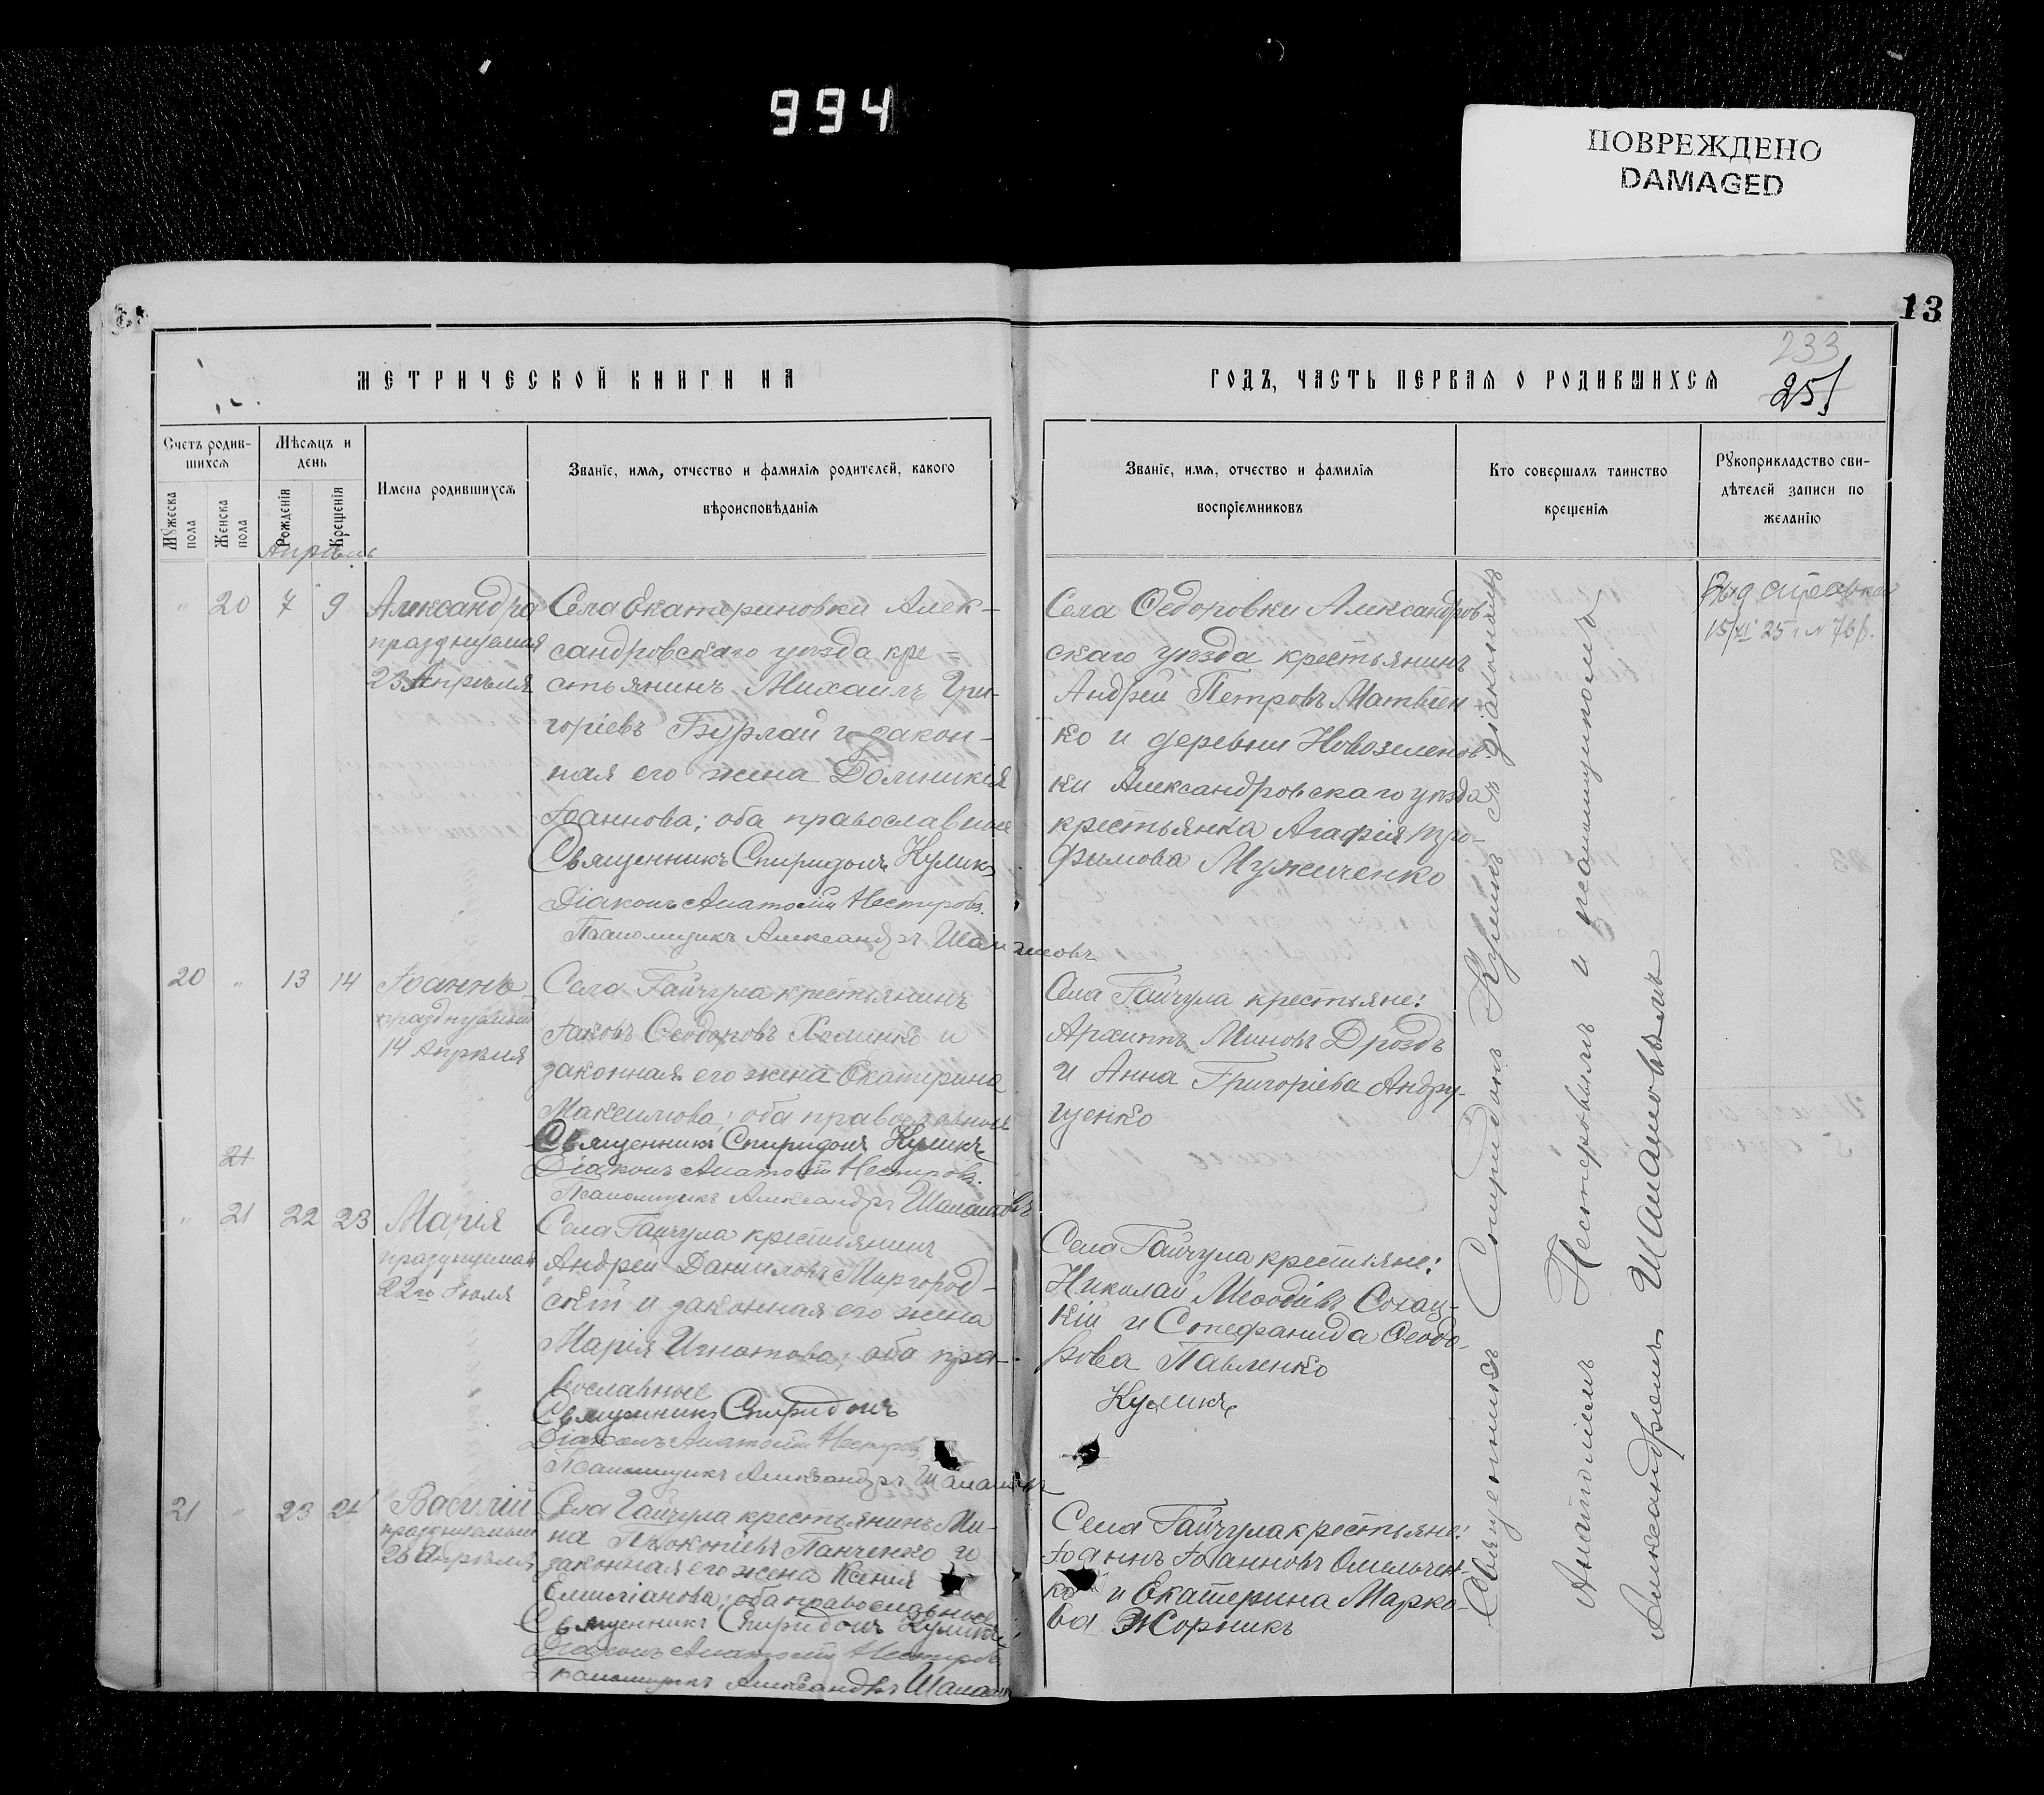 994
ПОВРЕЖДЕНО
DAMAGED
13
233
251
МЕТРИЧЕСКОЙ КНИГИ НА
ГОДЪ, ЧАСТЬ ПЕРВАЯ О РОДИВШИХСЯ
Счетъ родив-
шихся
Мужеска
пола
Женска
пола
Мѣсяцъ и
день
Рожденія
Крещенія
Имена родившихся
Званіе, имя, отчество и фамилія родителей, какого
вѣроисповѣданія
Званіе, имя, отчество и фамилія
воспріемниковъ
Кто совершалъ таинство
крещенія
Рукоприкладство сви-
дѣтелей записи по
желанію
Апрѣль
" 20 7 9
Александра
празднуемая
23 Апрѣля
Села Екатериновки Алек-
сандровскаго уѣзда кре=
стьянинъ Михаилъ Гри-
горіевъ Бурлай и закон-
ная его жена Домникія
Іоаннова; оба православные
Священникъ Спиридонъ Куликъ
Діаконъ Анатолій Нестеровъ.
Псаломщикъ Александръ Шамановъ
Села Ѳедоровки Александров-
скаго уѣзда крестьянинъ
Андрей Петровъ Матвіен-
ко и деревни Новозеленов-
ки Александровскаго уѣзда
крестьянка Агафія Тро-
фимова Мужиченко
Выд справка
15/VI 25 г N 76
20 " 13 14
Іоаннъ
празднуемый
14 Апрѣля
Села Гайчула крестьянинъ
Іаковъ Ѳеодоровъ Хоменко и
законная его жена Екатерина
Максимова; оба православные
Священникъ Спиридонъ Куликъ
Діаконъ Анатолій Нестеровъ.
Псаломщикъ Александръ Шамановъ
Села Гайчула крестьяне:
Архиппъ Миновъ Дроздъ
и Анна Григоріева Андру-
щенко
21
" 21 22 23
Марія
празднуемая
22го Іюля
Села Гайчула крестьянинъ
Андрей Даниловъ Миргород-
скій и законная его жена
Марія Игнатова; оба пра-
вославные
Священникъ Спиридонъ
Куликъ
Діаконъ Анатолій Нестеровъ
Псаломщикъ Александръ Шамановъ
Села Гайчула крестьяне:
Николай
кій и Стефанида Ѳеодо-
рова Павленко
21 " 23 24
Василій
празднуемый
26 Апрѣля
Села Гайчула крестьянинъ Ми-
на Прокопіевъ Панченко и
законная его жена Ксенія
Емиліанова; оба православные
Священникъ Спиридонъ Куликъ
Діаконъ Анатолій Нестеровъ
Псаломщикъ Александръ Шаманов
Села Гайчула крестьяне:
Іоаннъ Іоанновъ Омельчен-
ко и Екатерина Марко-
ва Жорникъ
Священникъ Спиридонъ Куликъ съ діакономъ
Анатоліемъ Нестеровымъ и псаломщикомъ
Александромъ Шамановымъ